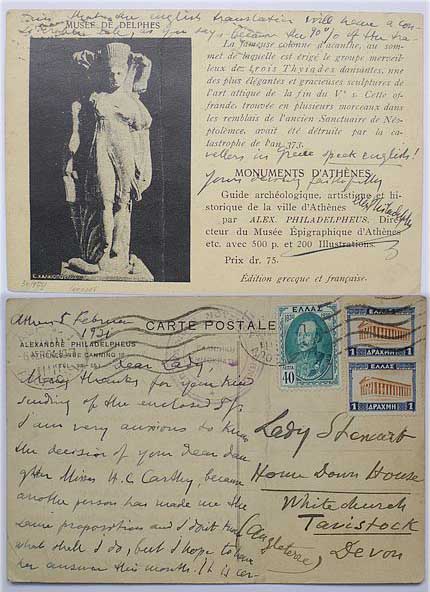 MUSÉE DE DELPHES
english translation will have a con-
as you say because the 90% of the tra-
La fameuse colonne d'acanthe, au som-
met de laquelle est érigé le groupe merveil-
leux de trois Thyiades dansantes, une
des plus élégantes et gracieuses sculptures de
l'art attique de la fin du Vᵉ s. Cette of-
frande, trouvée en plusieurs morceaux dans
les remblais de l'ancien Sanctuaire de Néo-
ptolème, avait été détruite par la ca-
tastrophe de l'an 373.
vellers in Greece speak english!
Yours very faithfully
MONUMENTS D'ATHÈNES
Guide archéologique, artistique et hi-
storique de la ville d'Athènes
par ALEX. PHILADELPHEUS, Dire-
cteur du Musée Épigraphique d'Athènes
etc. avec 500 p. et 200 Illustrations.
Prix dr. 75.-
Édition grecque et française.
CARTE POSTALE
Athens 5
1931
ALEXANDRE PHILADELPHEUS
ATHÈNES RUE CANNING
dear Lady
Many thanks for your kind
sending of the enclosed
I am very anxious to know
the decision of your dear dau-
ghter Misses H.C. Carthy, because
another person has made me the
same proposition and I don't know
what shall I do, but I hope to have
her answer this month. It is cer-
ΕΛΛΑΣ
40
ΛΕΠΤΑ
ΕΛΛΑΣ
1 ΔΡΑΧΜΗ 1
ΕΛΛΑΣ
1 ΔΡΑΧΜΗ 1
Lady Stewart
Home Down House
Whitchurch
Tavistock
Devon
(Angleterre)